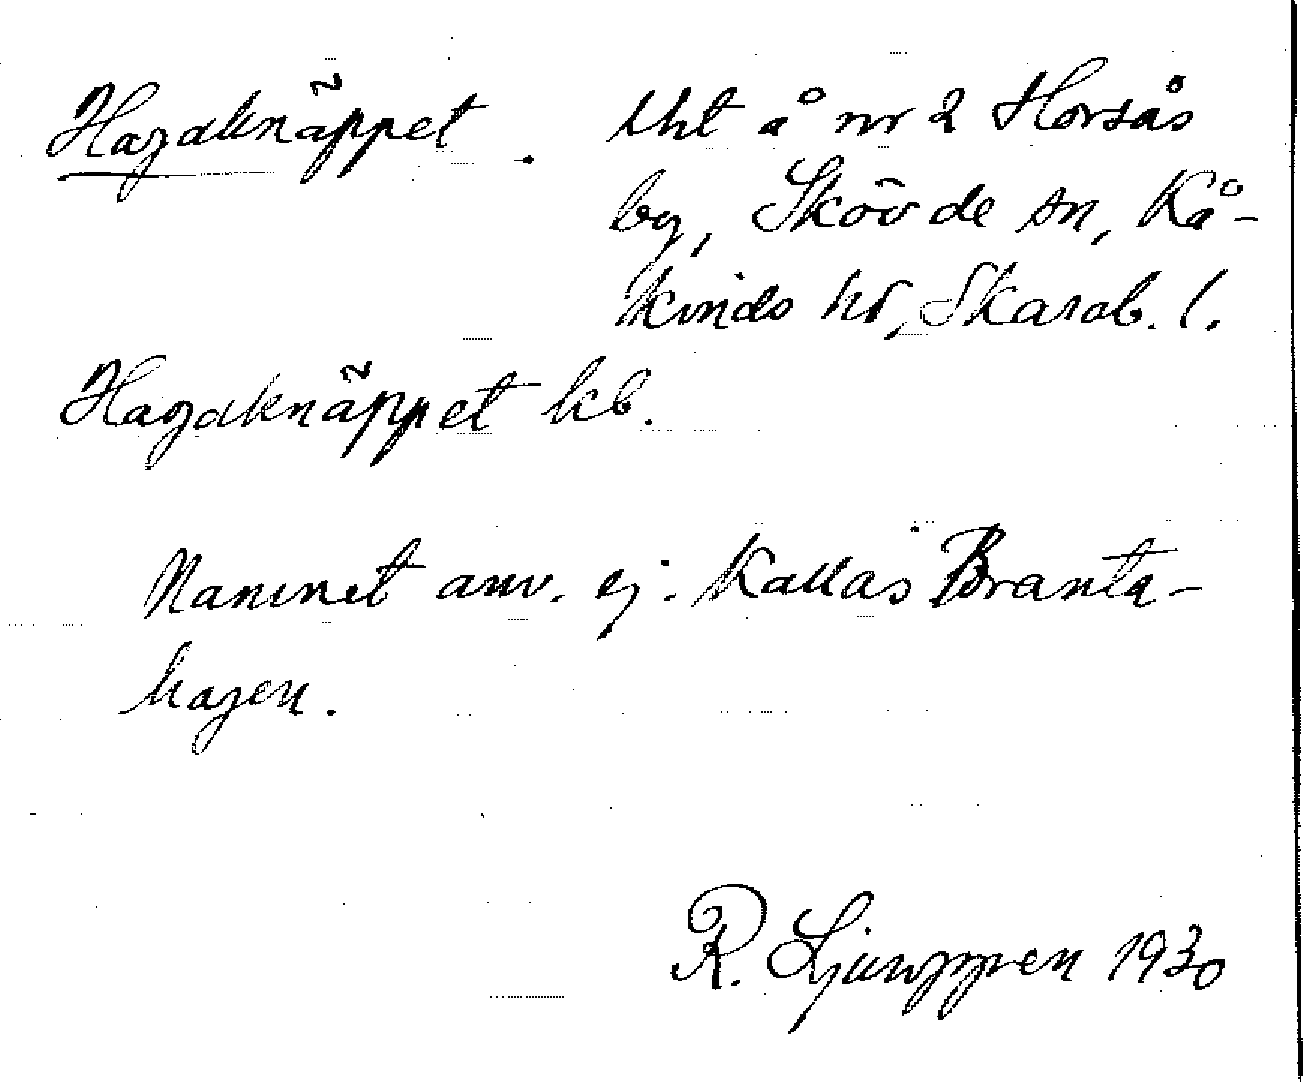 Hagaknäppet. Uht å nr 2 Horsås
by, Skövde sn, Kå-
kinds hd, Skarab. l.
Hagaknäppet kb.
Namnet anv. ej. Kallas Branta-
hagen.
R. Ljunggren 1930